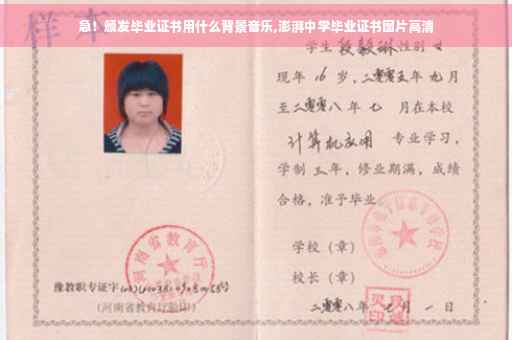 急！颁发毕业证书用什么背景音乐,澎湃中学毕业证书图片高清
样本
学生段毅琳性别女
现年16岁，二零零五年九月
至二零零八年七月在本校
计算机应用 专业学习，
学制三年，修业期满，成绩
合格，准予毕业
学校（章）
校长（章）
二零零八年七月一日
河南省教育厅
豫教职专证字
(河南省教育厅验印)